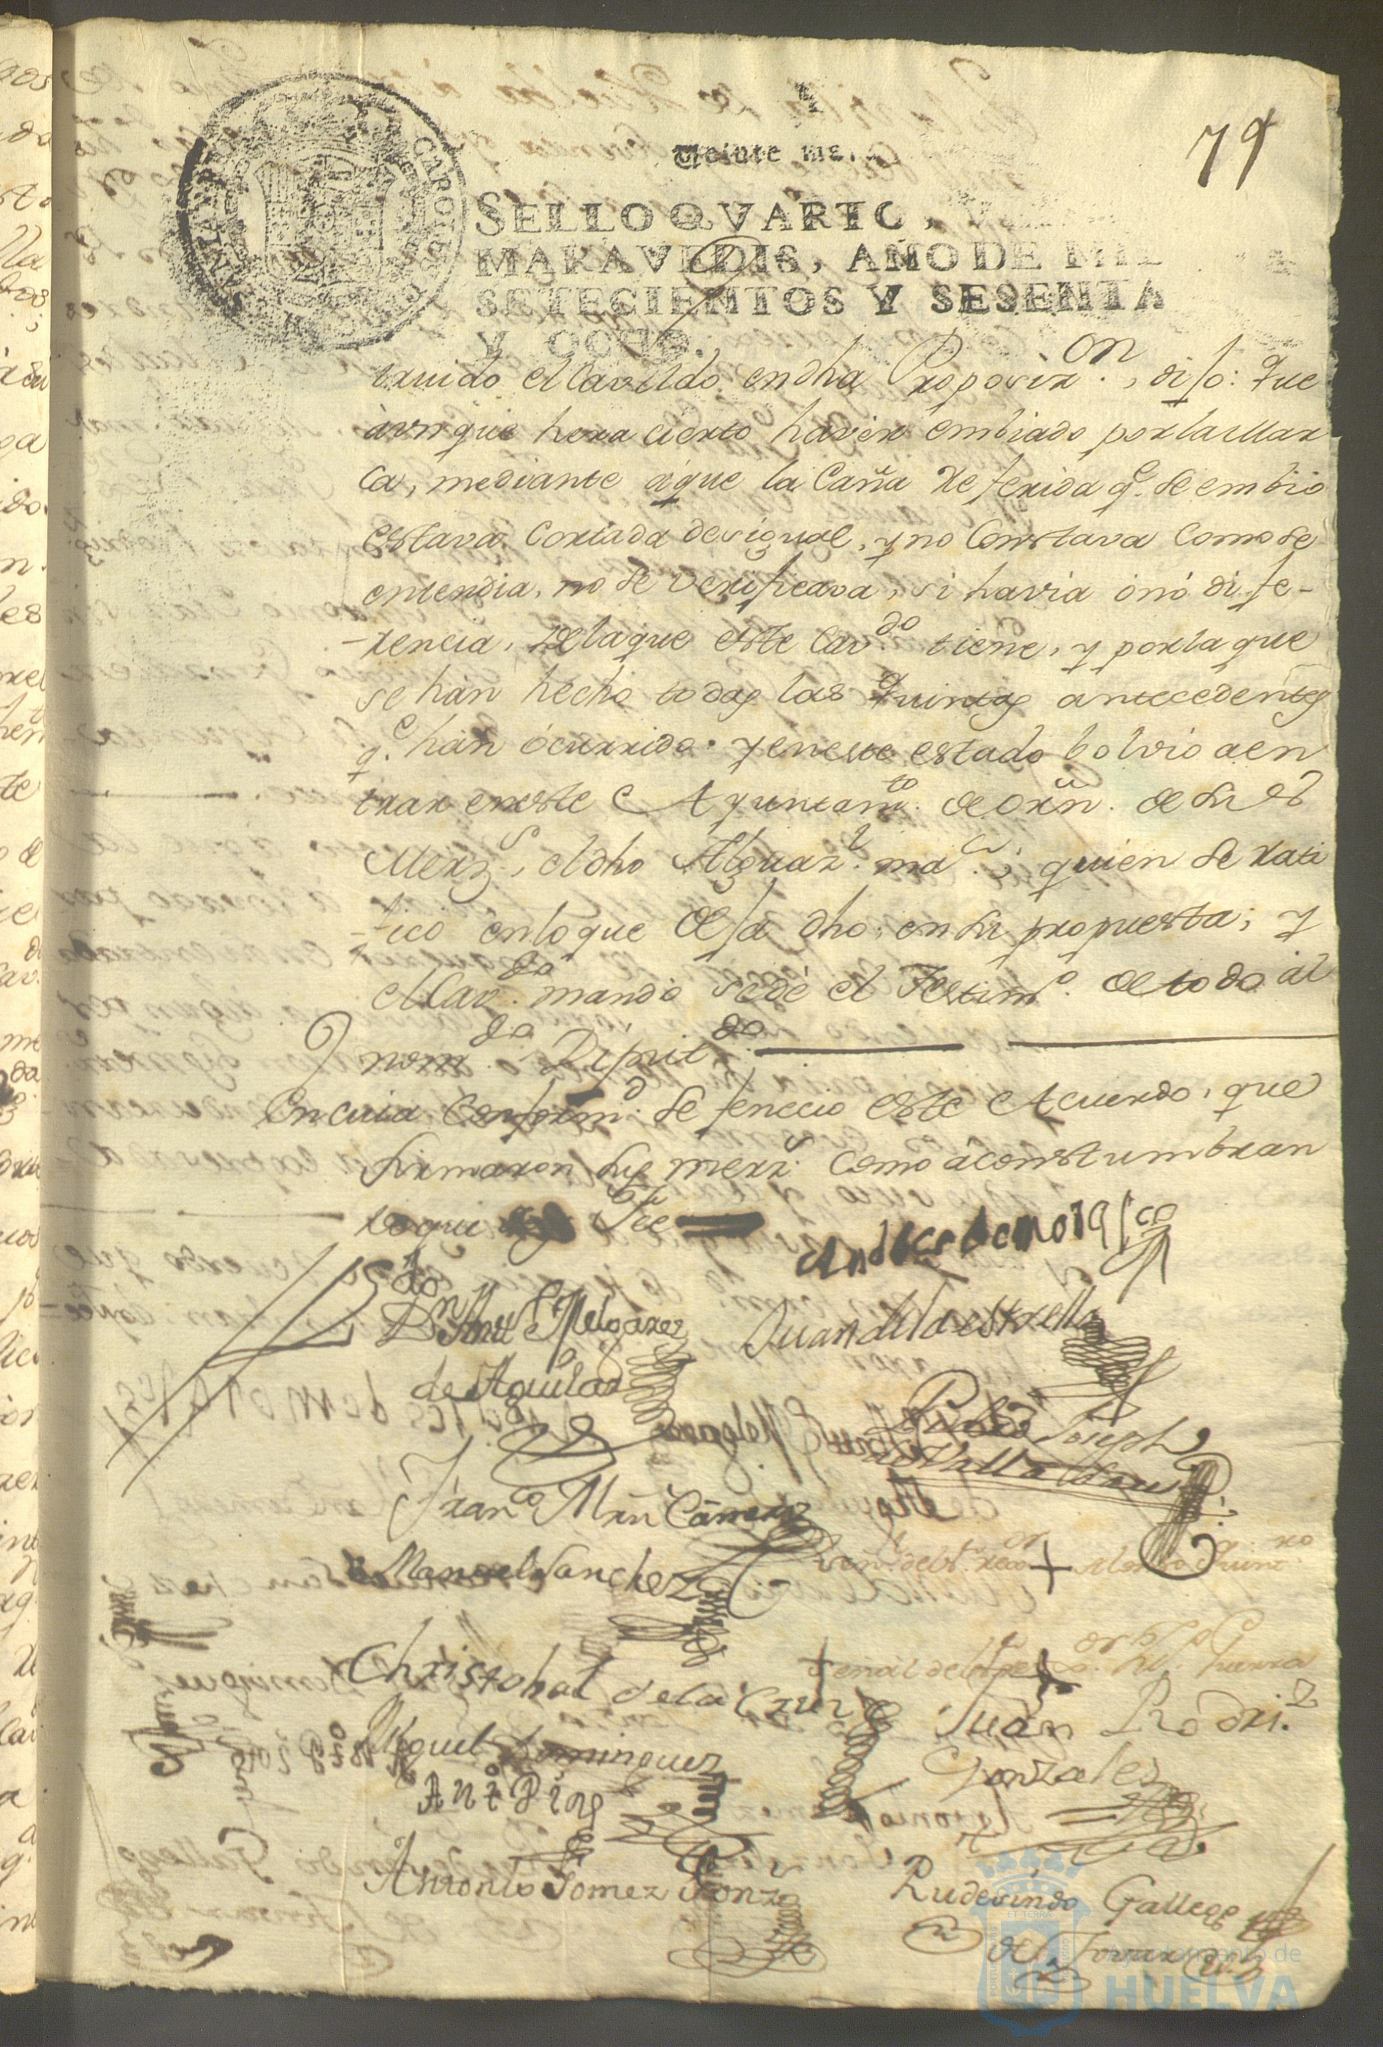 79
Veinte mar
SELLO QVARTO,
MARAVEDIS, AÑO DE MIL
SETECIENTOS Y SESENTA
Y OCHO.
truido el Cavildo en dha Proposizon., dijo: Que
àunque hera cierto haver embiado por la Mar
ca, mediante a que la Caña referida qe. se embio
estava cortada desigual, y no Constava como se
entendia, no se verificava, si havia ònò dife-
-rencia, de la que este Cavdo. tiene, y por la que
se hàn hecho todas las Quintas antecedentes
qe. hàn òcurrido. y en este estado bolvio a en
trar en este Ayuntamto. de orñ. de sus
Merzs, el dho Alguazl. mar., quien se rati
fico en lo que deja dho, en su propuesta; y
el Cavdo. mando se dè el Testimo. de todo àl
nomdo. Diputdo.
En cuia Conformd. se fenecio este Acuerdo, que
firmaron sus merzs. como aconstumbran
de que doy Fee
Andres de morales
Ldo Dn Antt Melgarez
de Aguilar
Juan de la estrella
Pablo Joseph
Valladares
Franco Mrn Camero
Manuel Sanchez
+ Alonso Quintro
Christobal de la Cruz
señal de
Guerra
Miguel Dominguez
Juan Rodriz
Gonzales
Ant Diaz
Antonio Gomez Gonzs
Rudesindo Gallego
de Tovar
Ayuntamiento de
HUELVA